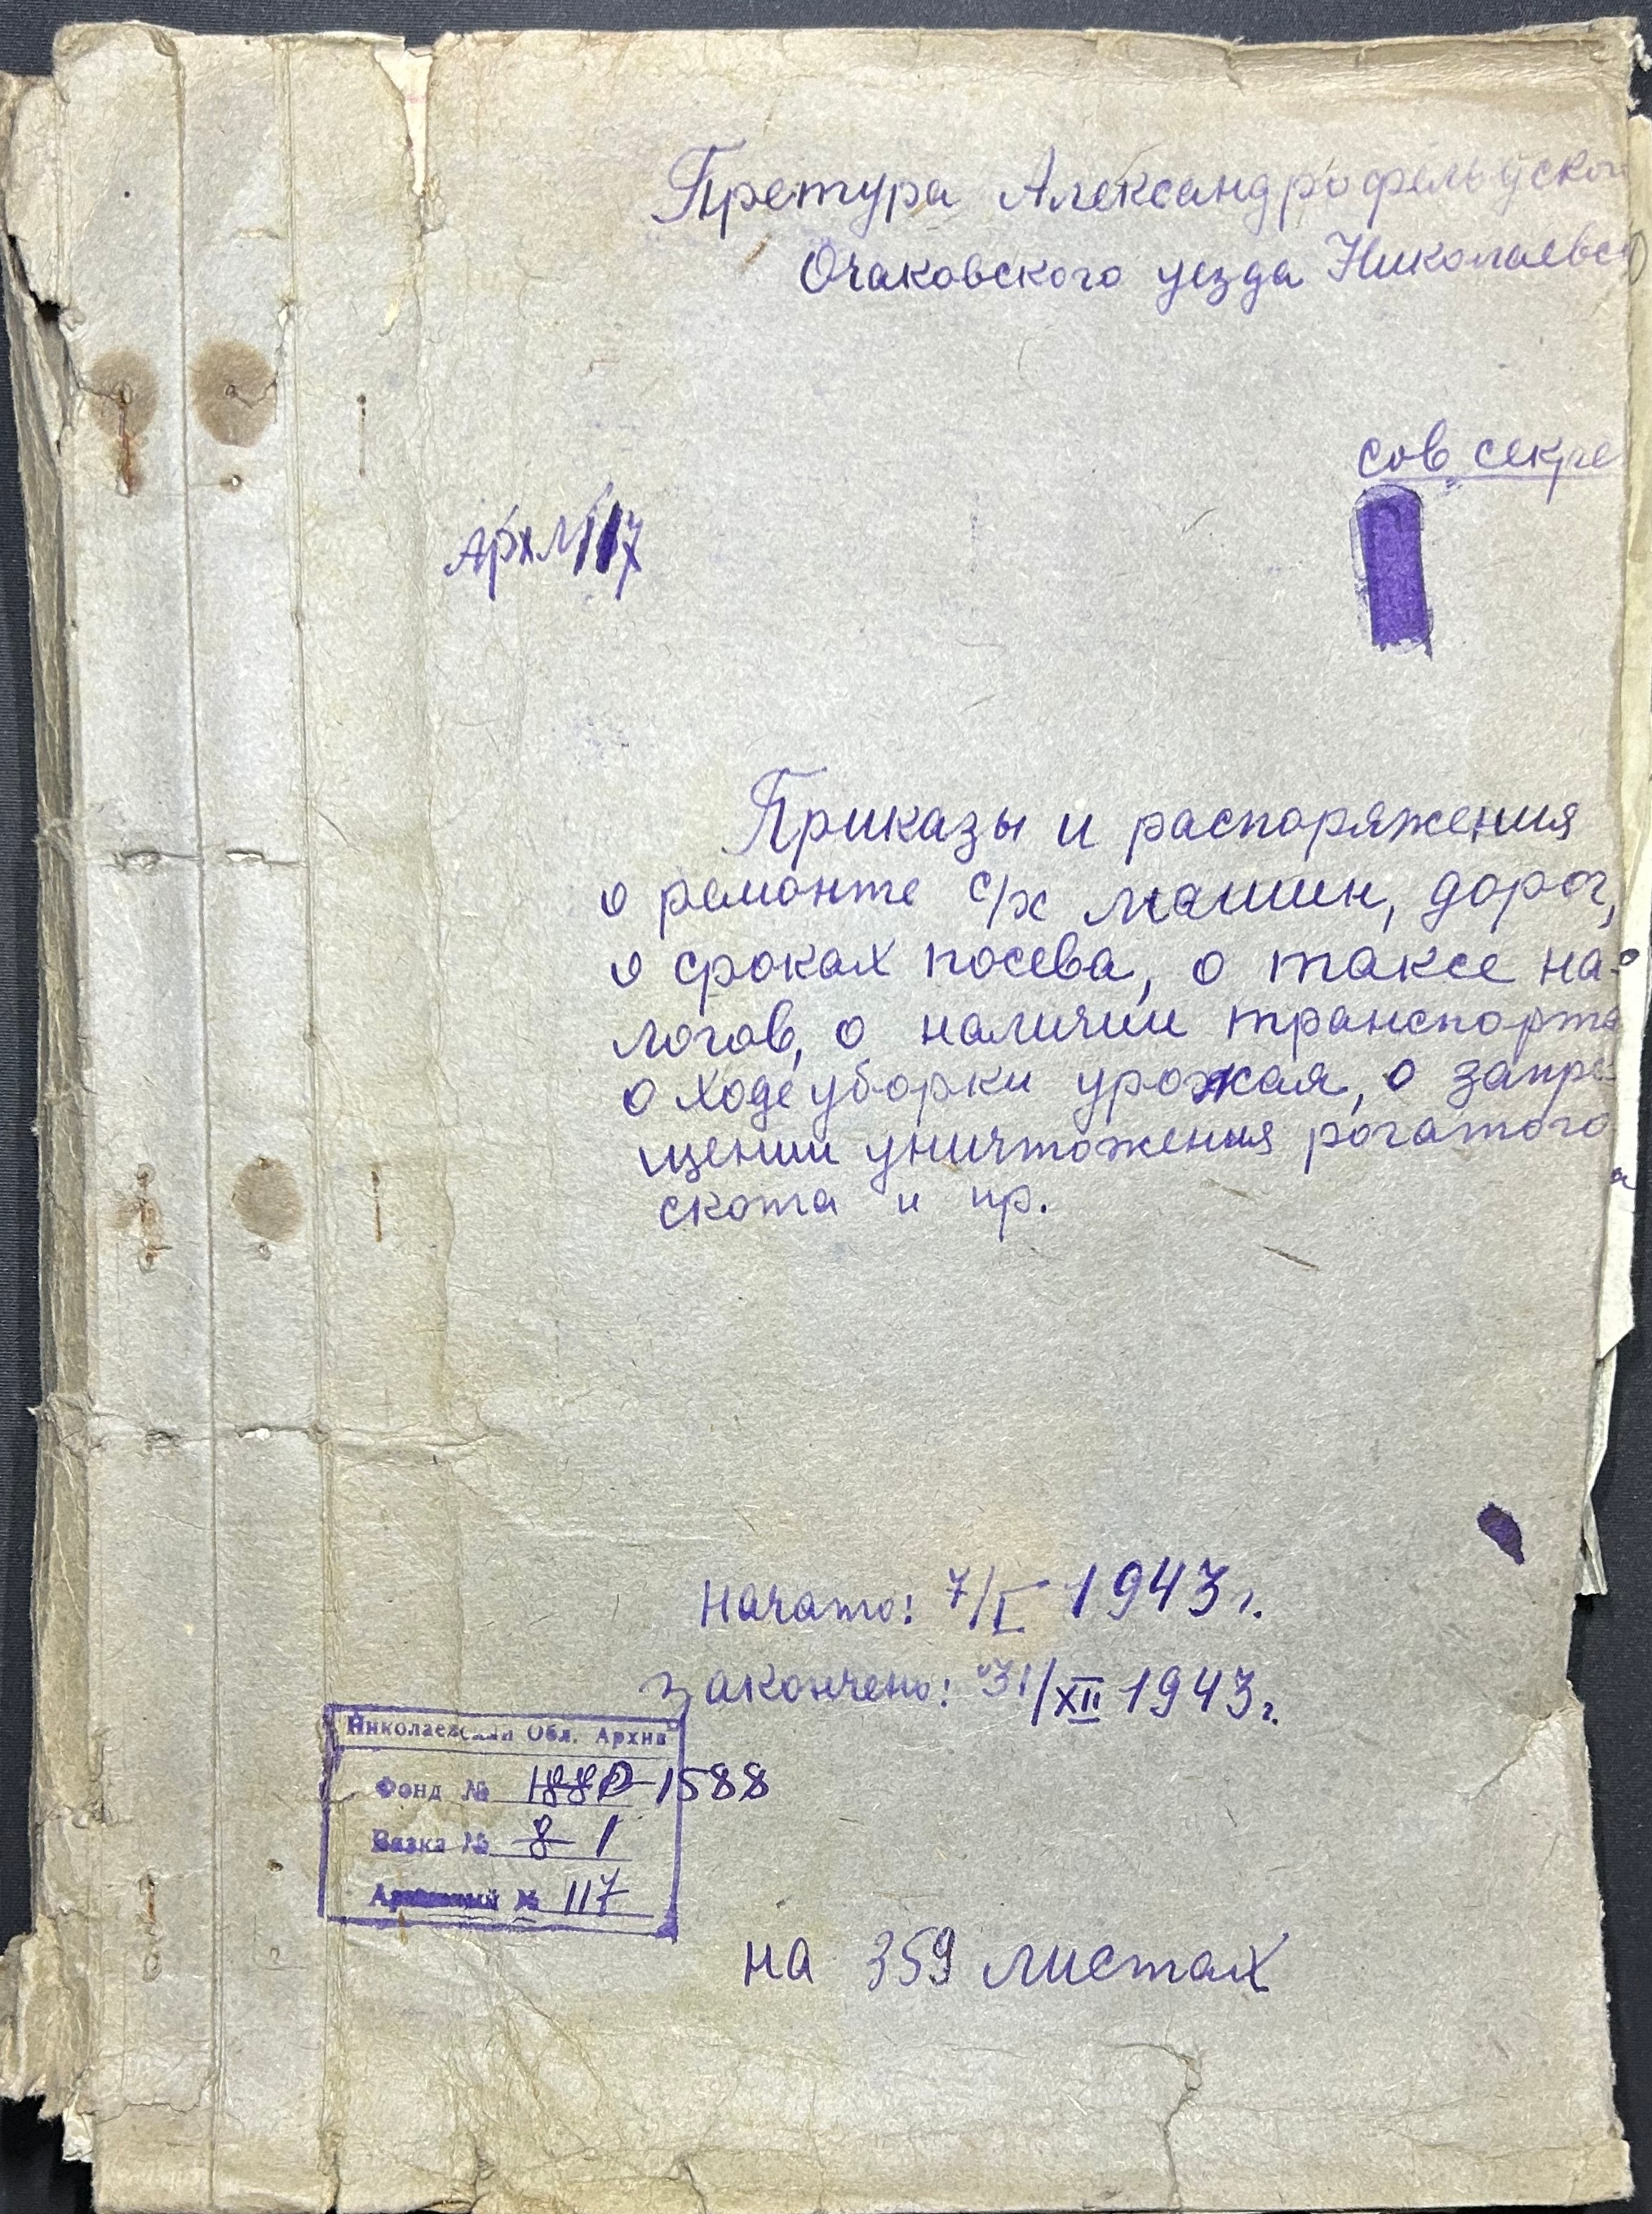 Претура Александрофельдской
Очаковского уезда Николаевско
сов секре
Арх № 117
Приказы и распоряжения
о ремонте с/х машин, дорог,
о сроках посева, о таксе на-
логов, о наличии транспорта
о ходе уборки урожая, о запре-
щении уничтожения рогатого
скота и пр.
Начато: 7/I 1943 г.
Закончено: 31/XII 1943 г.
Николаевский Обл. Архив
Фонд № 1880 1588
Вязка № 8 1
Архивный № 117
на 359 листах